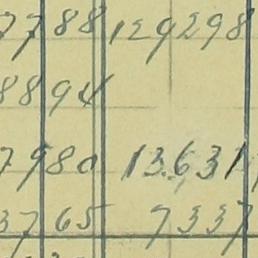 7788 129298
8894
7980 13.631
3765 7337